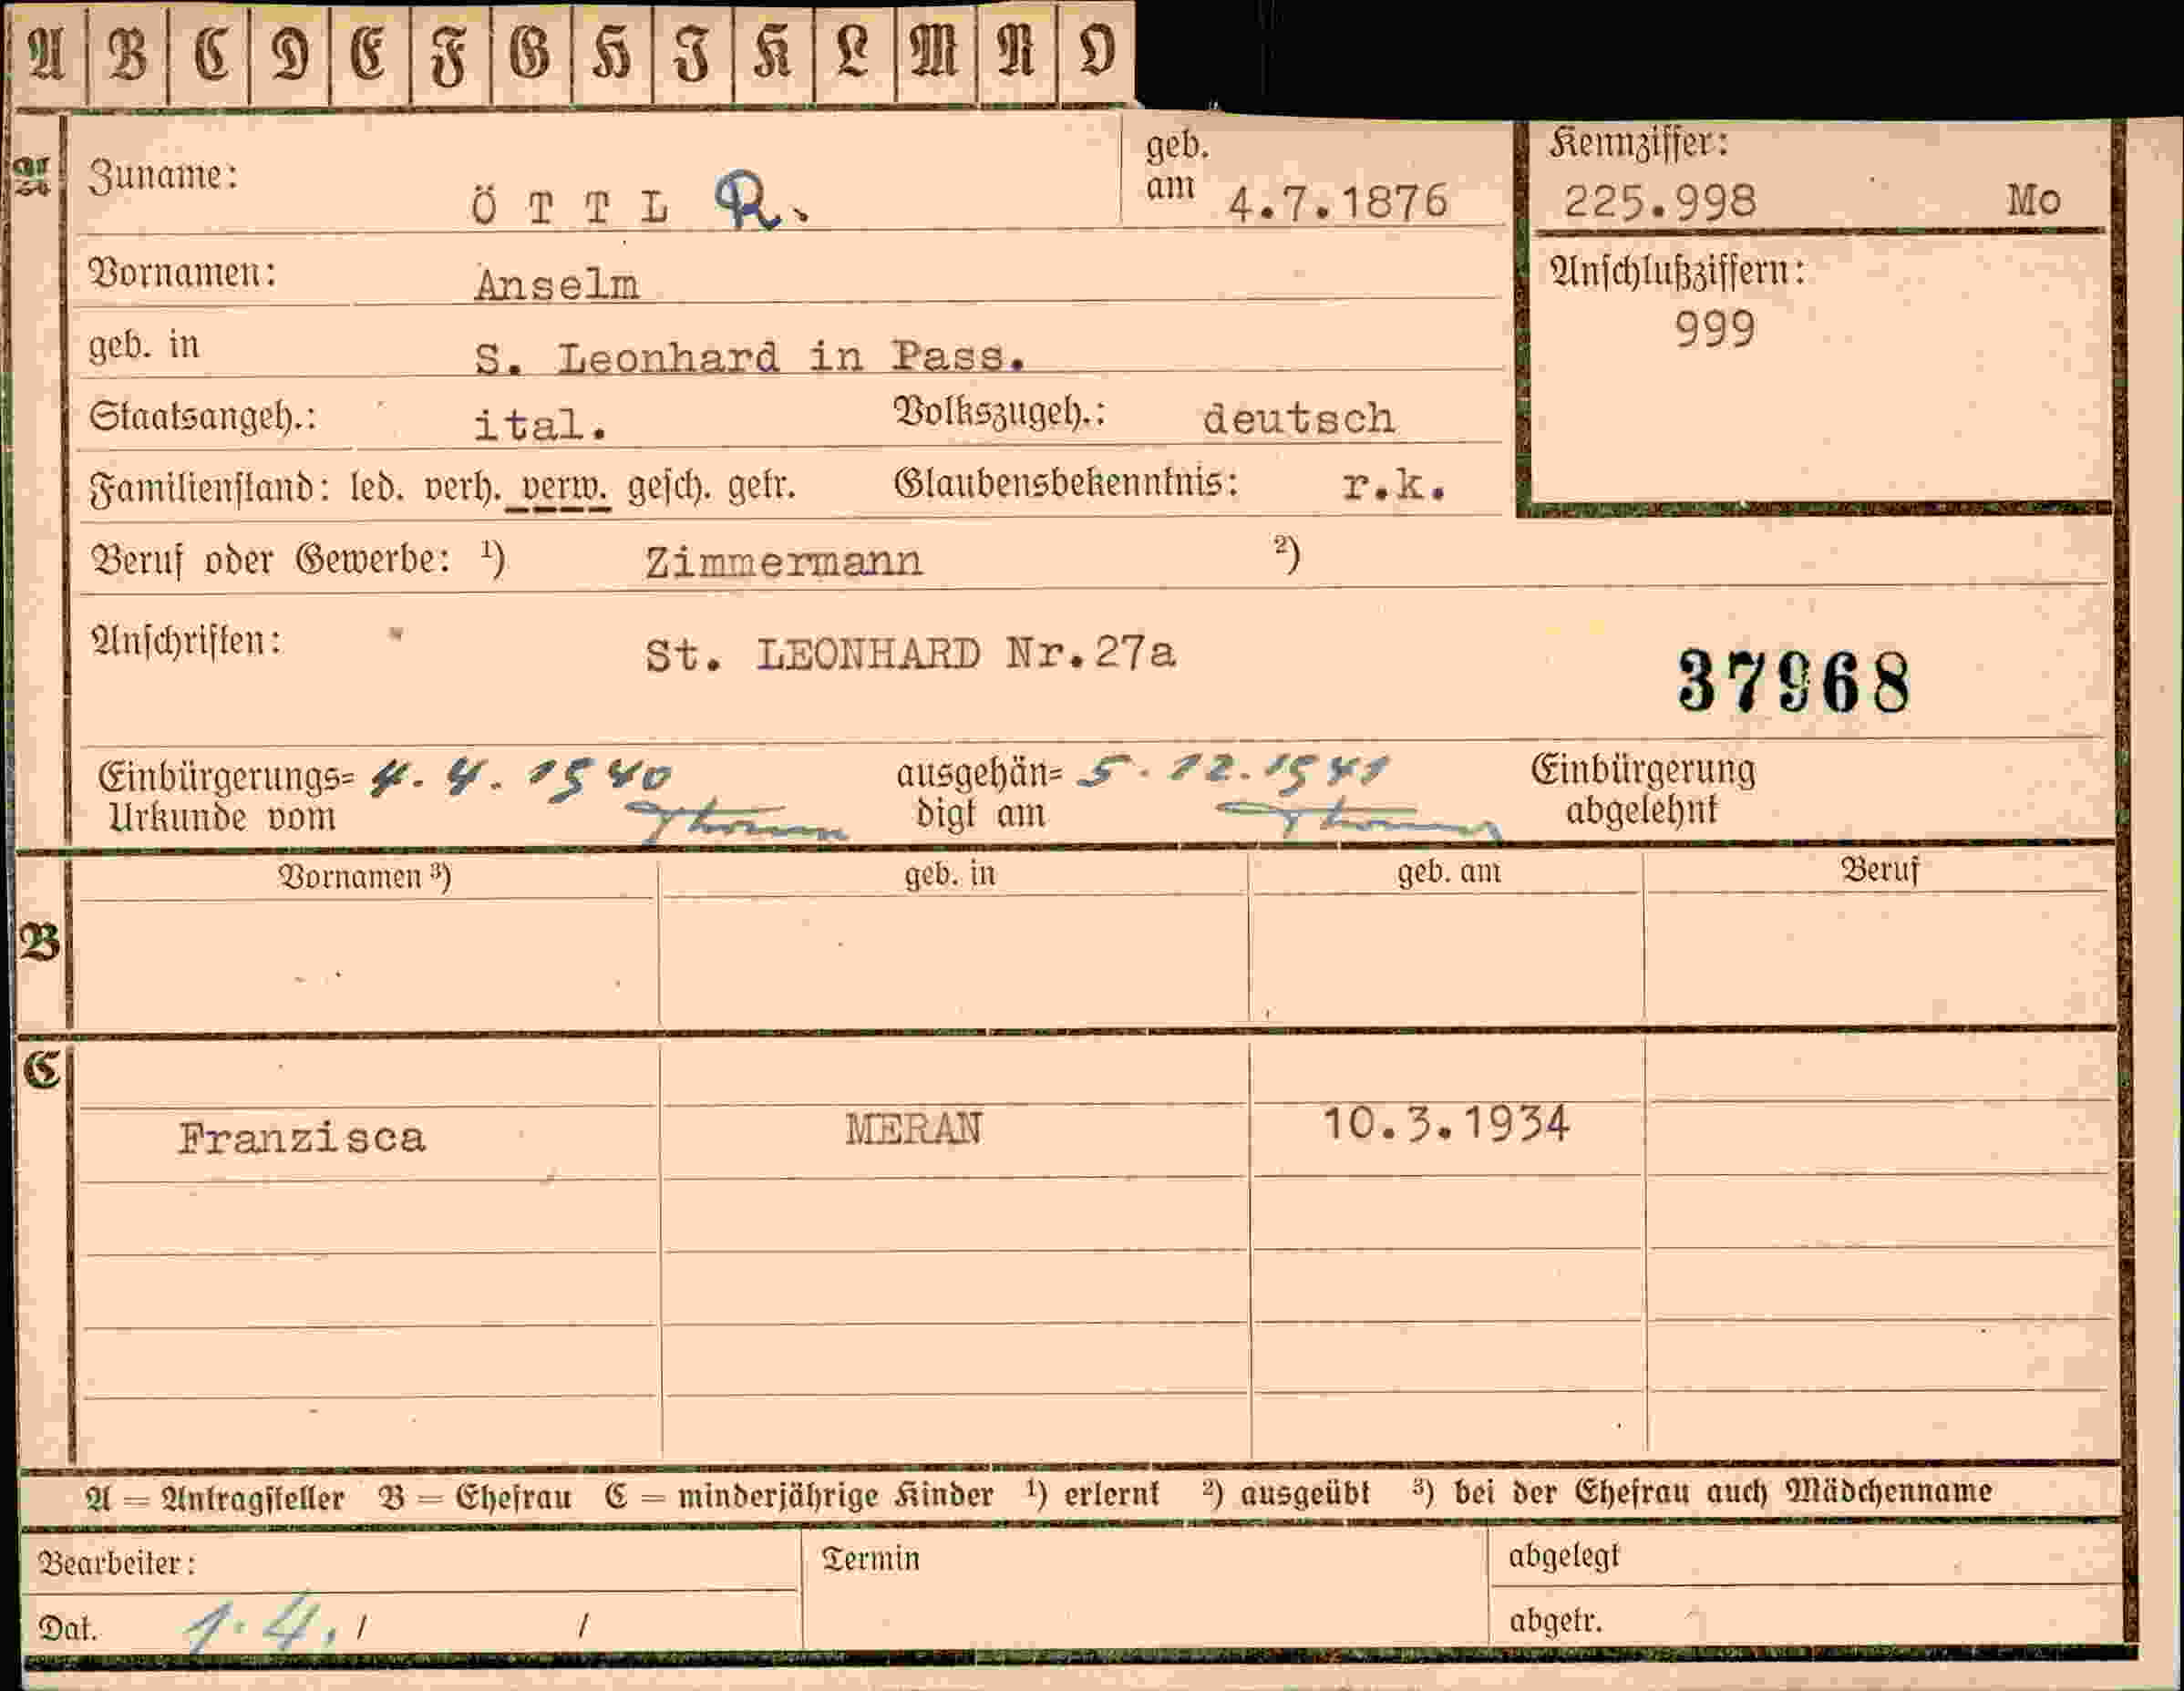 A B C D E F G H I K L M N O
A Zuname: ÖTTL R. geb. am 4.7.1876 Kennziffer: 225.998 Mo
Vornamen: Anselm Anschlußziffern: 999
geb. in S. Leonhard in Pass.
Staatsangeh.: ital. Volkszugeh.: deutsch
Familienstand: led. verh. verw. gesch. getr. Glaubensbekenntnis: r.k.
Beruf oder Gewerbe: ¹) Zimmermann ²)
Anschriften: St. LEONHARD Nr.27a 37968
Einbürgerungs= 4. 4. 1940 ausgehän= 5. 12. 1941 Einbürgerung
Urkunde vom digt am abgelehnt
Vornamen ³) geb. in geb. am Beruf
B
C
Franzisca MERAN 10.3.1934
A = Antragsteller B = Ehefrau C = minderjährige Kinder ¹) erlernt ²) ausgeübt ³) bei der Ehefrau auch Mädchenname
Bearbeiter: Termin abgelegt
Dat. 1. 4. / / abgetr.